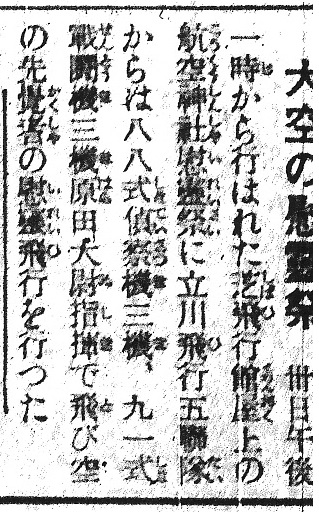 大空の慰靈祭 卅日午後
一時から行はれた芝飛行館屋上の
航空神社慰靈祭に立川飛行五聯隊
からは八八式偵察機三機、九一式
戰鬪機三機原田大尉指揮で飛び空
の先覺者の慰靈飛行を行つた